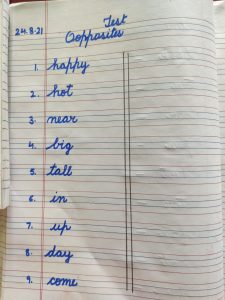 24.8.21
Test
Oopposites
1. happy
2. hot
3. near
4. big
5. tall
6. in
7. up
8. day
9. come